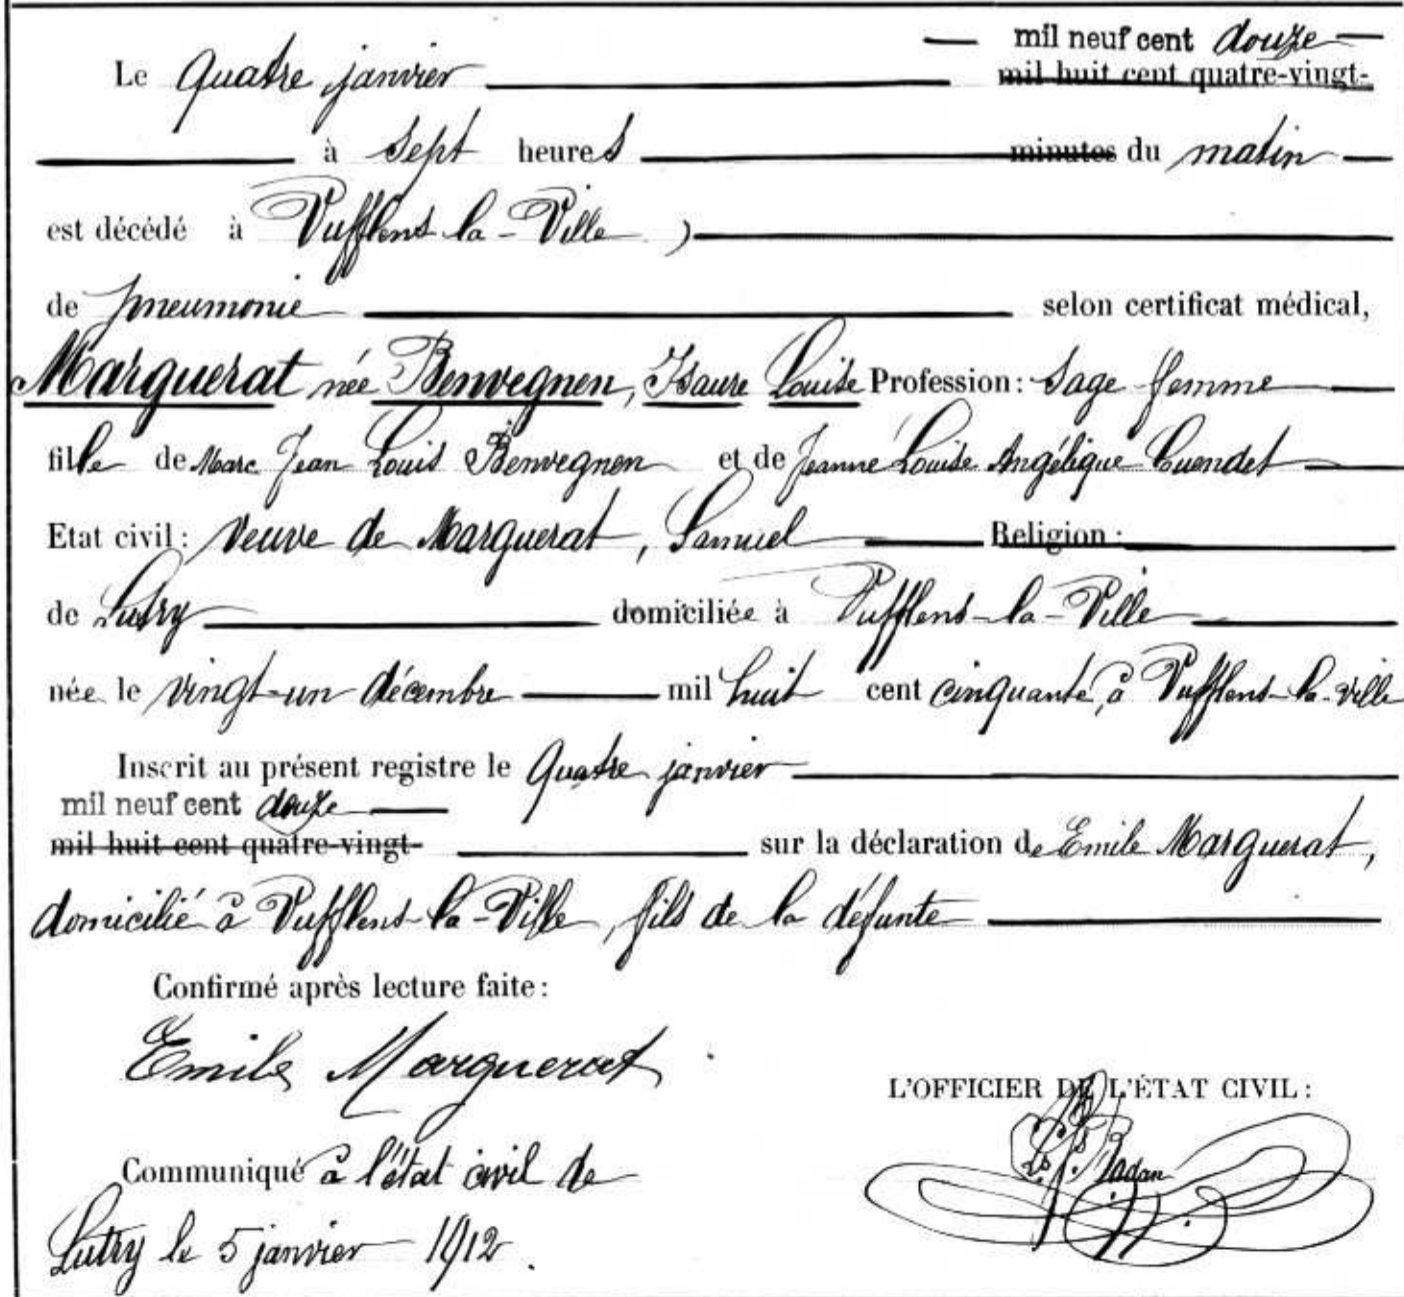 mil neuf cent douze
Le quatre janvier mil huit cent quatre-vingt-
à sept heures minutes du matin
est décédé à Vufflens-la-Ville
de pneumonie selon certificat médical,
Marguerat née Benvegnen, Isaure Louise Profession: Sage femme
fille de Marc Jean Louis Benvegnen et de Jeanne Louise Angélique Cuendet
Etat civil: Veuve de Marguerat, Samuel Religion:
de Lutry domiciliée à Vufflens-la-Ville
née le vingt-un décembre mil huit cent cinquante, à Vufflens-la-ville
Inscrit au présent registre le quatre janvier
mil neuf cent douze
mil huit cent quatre-vingt- sur la déclaration de Emile Marguerat,
domicilié à Vufflens-la-Ville, fils de la défunte
Confirmé après lecture faite:
Emile Marguerat
L'OFFICIER DE L'ÉTAT CIVIL:
Communiqué à l'état civil de
Lutry le 5 janvier 1912.